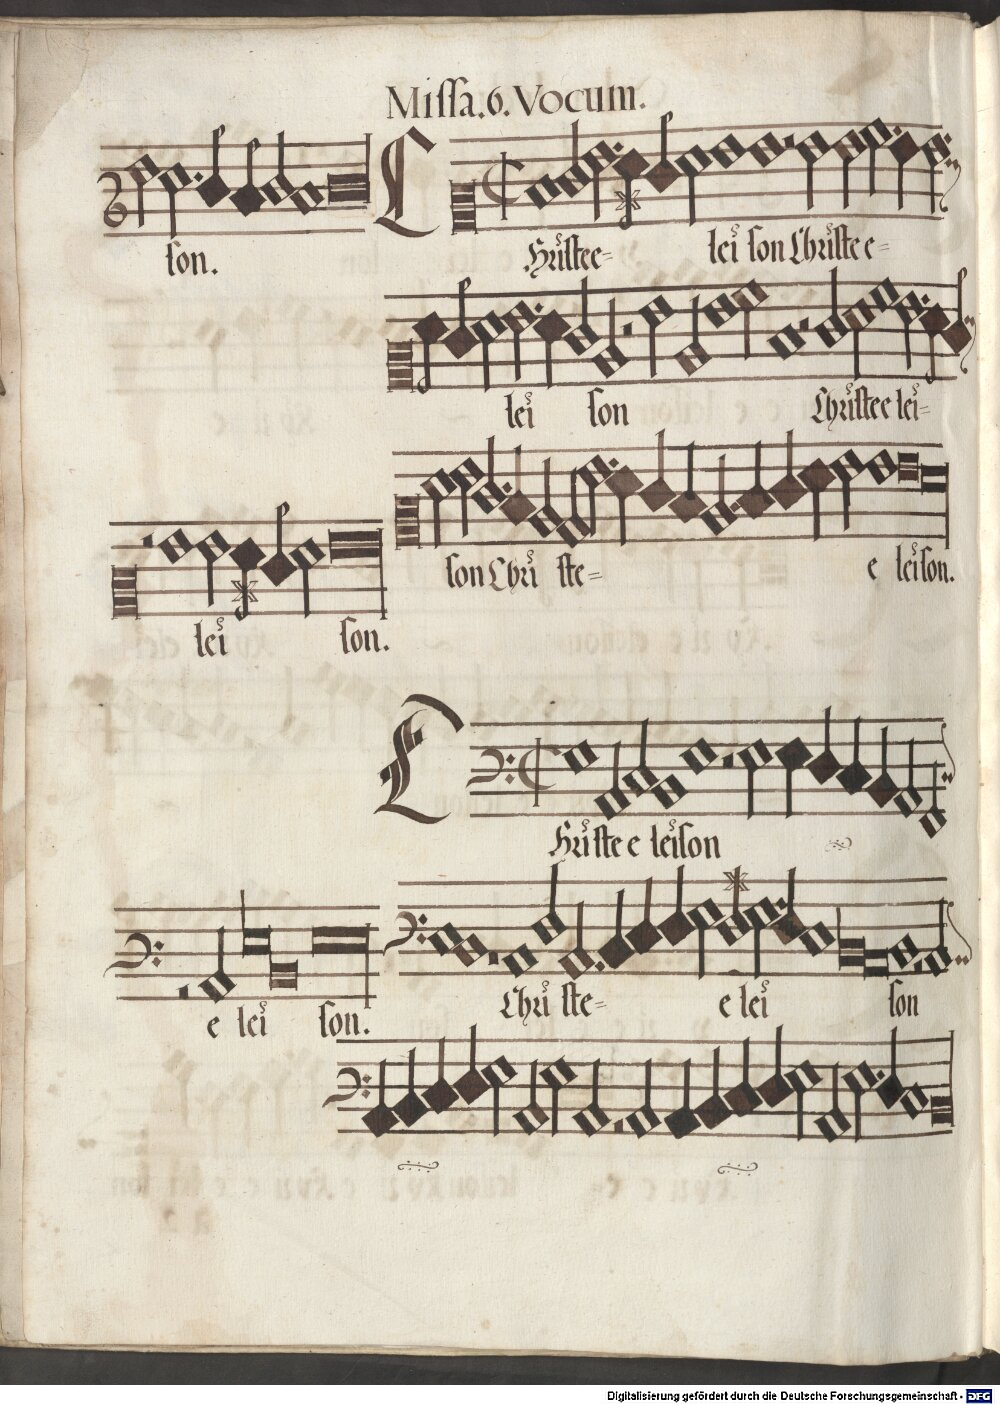 Missa.6.Vocum.
son.
Christe e=
lei son Christe e=
lei son
Christe e lei=
son Chri ste=
e leison.
lei son.
Christe e leison
Chri ste=
e lei son
e lei son.
Digitalisierung gefördert durch die Deutsche Forschungsgemeinschaft - DFG